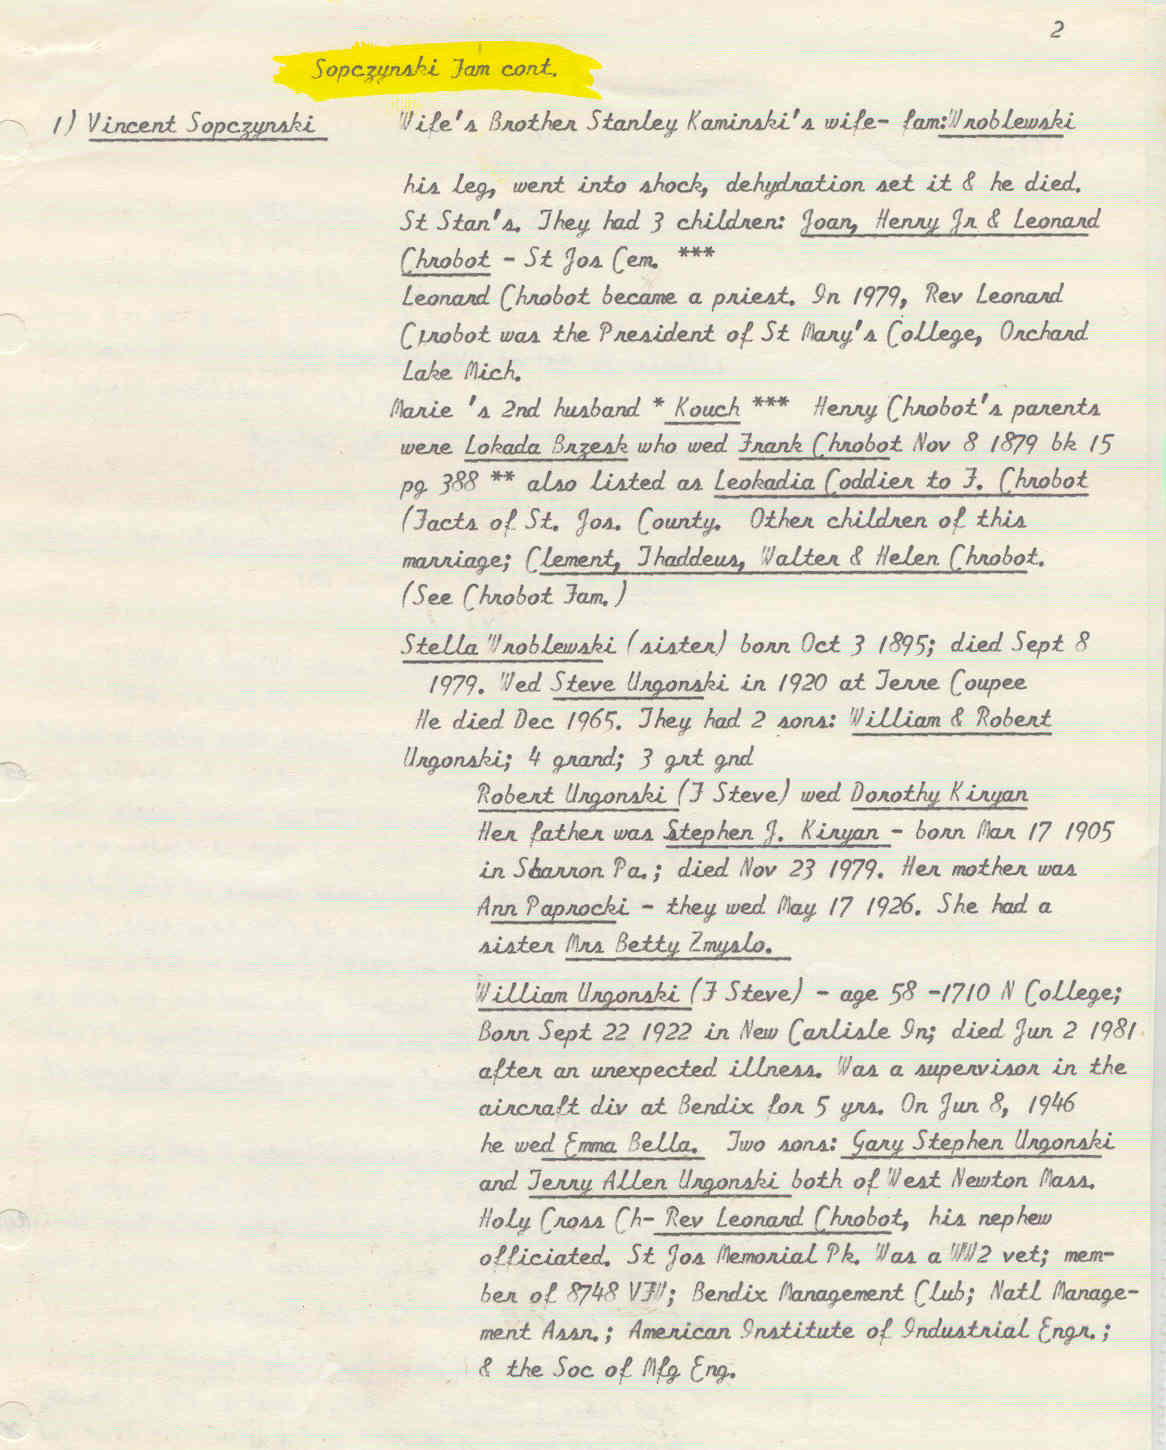 2
Sopczynski Fam cont.
1) Vincent Sopczynski Wife's Brother Stanley Kaminski's wife- fam:Wroblewski
his leg, went into shock, dehydration set it & he died.
St Stan's. They had 3 children: Joan, Henry Jr & Leonard
Chrobot - St Jos Cem. ***
Leonard Chrobot became a priest. In 1979, Rev Leonard
Crobot was the President of St Mary's College, Orchard
Lake Mich.
Marie 's 2nd husband * Kouch *** Henry Chrobot's parents
were Lokada Brzesk who wed Frank Chrobot Nov 8 1879 bk 15
pg 388 ** also listed as Leokadia Coddier to F. Chrobot
(Facts of St. Jos. County. Other children of this
marriage; Clement, Thaddeus, Walter & Helen Chrobot.
(See Chrobot Fam.)
Stella Wroblewski (sister) born Oct 3 1895; died Sept 8
1979. Wed Steve Urgonski in 1920 at Terre Coupee
He died Dec 1965. They had 2 sons: William & Robert
Urgonski; 4 grand; 3 grt gnd
Robert Urgonski (F Steve) wed Dorothy Kiryan
Her father was Stephen J. Kiryan - born Mar 17 1905
in Sharron Pa.; died Nov 23 1979. Her mother was
Ann Paprocki - they wed May 17 1926. She had a
sister Mrs Betty Zmyslo.
William Urgonski (F Steve) - age 58 -1710 N College;
Born Sept 22 1922 in New Carlisle In; died Jun 2 1981
after an unexpected illness. Was a supervisor in the
aircraft div at Bendix for 5 yrs. On Jun 8, 1946
he wed Emma Bella. Two sons: Gary Stephen Urgonski
and Terry Allen Urgonski both of West Newton Mass.
Holy Cross Ch- Rev Leonard Chrobot, his nephew
officiated. St Jos Memorial Pk. Was a WW2 vet; mem-
ber of 8748 VFW; Bendix Management Club; Natl Manage-
ment Assn.; American Institute of Industrial Engr.;
& the Soc of Mfg Eng.